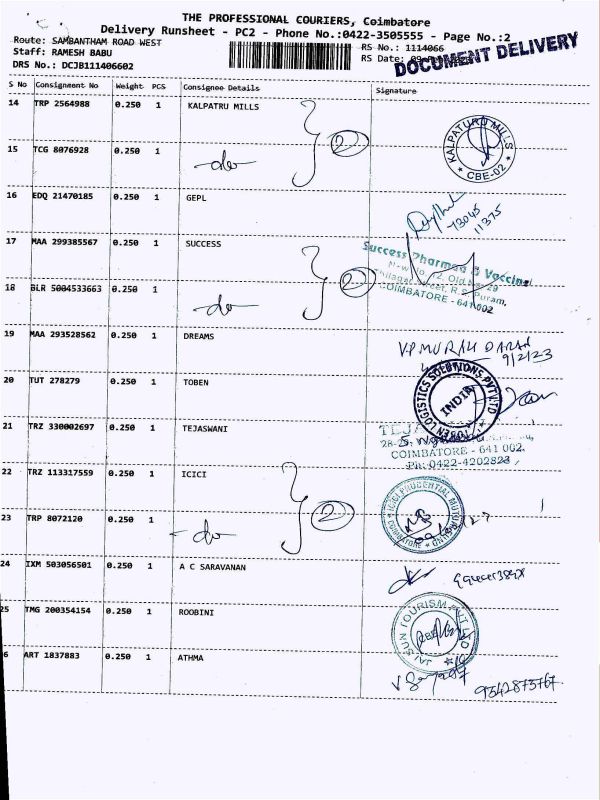 THE PROFESSIONAL COURIERS, Coimbatore
Delivery Runsheet - PC2 - Phone No.:0422-3505555 - Page No.:2
Route: SAMBANTHAM ROAD WEST
Staff: RAMESH BABU
DRS No.: DCJB111406602
RS No.: 1114066
RS Date:
DOCUMENT DELIVERY
S No Consignment No Weight PCS Consignee Details Signature
14 TRP 2564988 0.250 1 KALPATRU MILLS
2
KALPATURU MILLS
* CBE-02 *
15 TCG 8076928 0.250 1 -do-
16 EDQ 21470185 0.250 1 GEPL
73045
11375
17 MAA 299385567 0.250 1 SUCCESS
Success Pharmaa & Vaccine
New No. 12, Old No. 29
Street, R.S. Puram,
COIMBATORE - 641 002
18 BLR 5004533663 0.250 1 -do-
2
19 MAA 293528562 0.250 1 DREAMS
V.P MURALI DARAN
9/2/23
20 TUT 278279 0.250 1 TOBEN
TOBEN LOGISTICS SOLUTIONS PVT LTD
INDIA
21 TRZ 330002697 0.250 1 TEJASWANI
COIMBATORE - 641 002.
Ph: 0422-4202823
22 TRZ 113317559 0.250 1 ICICI
2
ICICI PRUDENTIAL MUTUAL FUND
* COIMBATORE *
23 TRP 8072120 0.250 1 -do-
24 IXM 503056501 0.250 1 A C SARAVANAN
25 TMG 200354154 0.250 1 ROOBINI
JAI SUN TOURISM PVT LTD
6 ART 1837883 0.250 1 ATHMA
9342873767